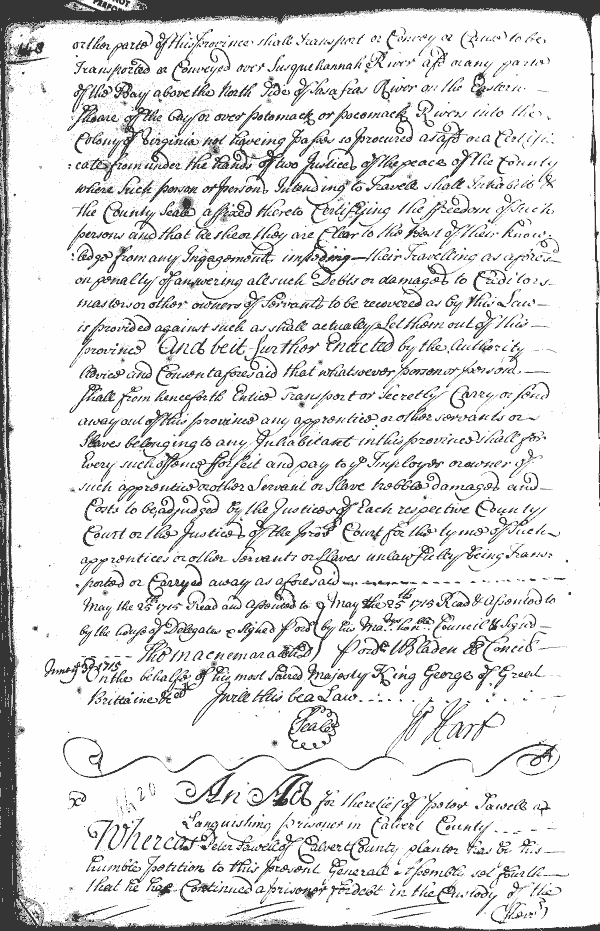 448
or other parts of this province shall Transport or Convey or Cause to be
Transported or Conveyed over Susquehannah River afd or any parte
of the Bay above the North Side of Sasafras River on the Eastern
Shoare of the Bay or over potomack or pocomack Rivers into the
Colony of Virginia not haveing passes so procured as afsd or a Certifi
cate from under the hands of two Justices of the peace of the County
where Such person or persons Intending to Travell shall Inhabitt &
the County Seale affixed thereto Certifying the ffreedom of Such
persons and that he she or they are Clear to the best of their know
ledge from any Ingagements impeding their Travelling as aforesd
on penalty of answering all such Debts or damages to Creditors
masters or other owners of Servants to be recovered as by this Law
is provided against such as shall actually Set them out of this
province And be it further Enacted by the Authority
Advice and Consent aforesaid that whatsoever person or persons
Shall from henceforth Entice Transport or Secretly Carry or send
away out of this province any apprentice or other servants or
Slaves belonging to any Inhabitant in this province shall for
Every such offence fforfeit and pay to ye Imployer or owner of
such apprentice or other Servant or Slave trebble damages and
Costs to be adjudged by the Justices of Each respective County
Court or the Justices of the prov: Court for the tyme of Such
apprentices or other Servants or Slaves unlawfully being Trans
ported or Carryed away as aforesaid
May the 25th 1715 Read and assented to
by the house of Delegates & Signed p ordr
Tho macnemara
May the 25th 1715 Read & Assented to
by his honble Council & Signd
p ordr WBladen Concil
June 3d 1715
On the behalfe of his most Sacred Majesty King George of Great
Brittaine &c I will this be a Law
Seale
Jo Hart
20
An Act for the relief of peter Sawell a
Languishing prisoner in Calvert County
Whereas Peter Sawell of Calvert County planter has by his
humble petition to this present Generall Assembly set fourth
that he has Continued a prisoner for debt in the Custody of the